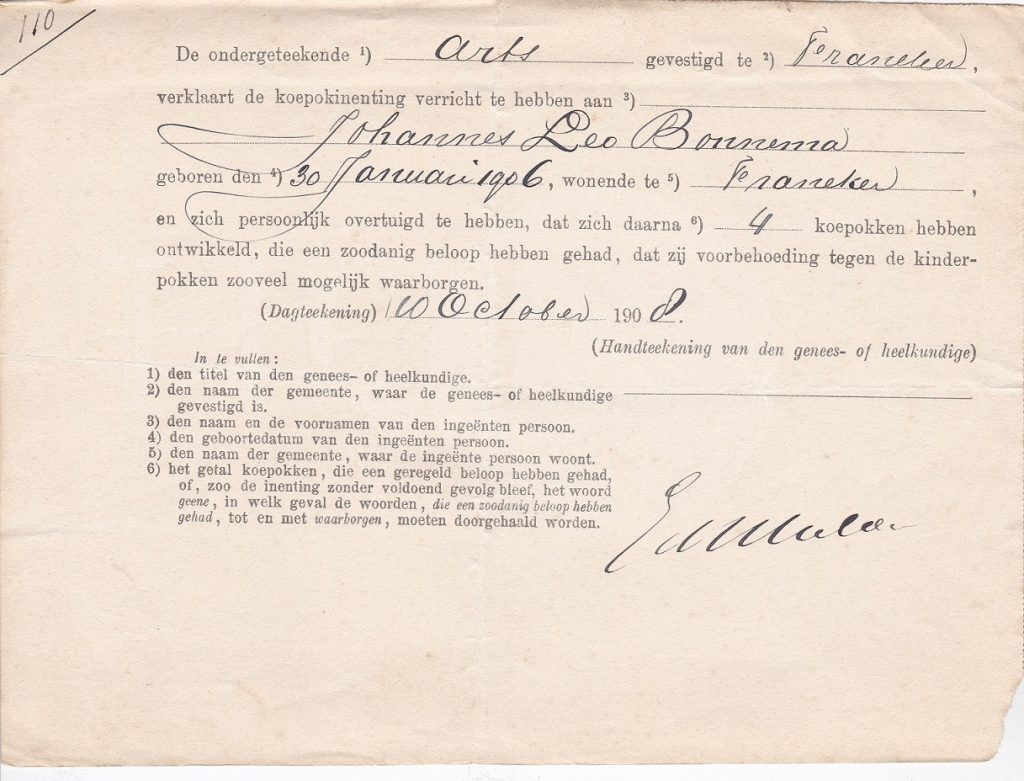 110
De ondergeteekende 1) Arts gevestigd te 2) Franeker,
verklaart de koepokinenting verricht te hebben aan 3)
Johannes Leo Bonnema
geboren den 4) 30 Januari 1906, wonende te 5) Franeker,
en zich persoonlijk overtuigd te hebben, dat zich daarna 6) 4 koepokken hebben
ontwikkeld, die een zoodanig beloop hebben gehad, dat zij voorbehoeding tegen de kinder-
pokken zooveel mogelijk waarborgen.
(Dagteekening) 10 October 1908.
(Handteekening van den genees- of heelkundige)
In te vullen:
1) den titel van den genees- of heelkundige.
2) den naam der gemeente, waar de genees- of heelkundige
gevestigd is.
3) den naam en de voornamen van den ingeënten persoon.
4) den geboortedatum van den ingeënten persoon.
5) den naam der gemeente, waar de ingeënte persoon woont.
6) het getal koepokken, die een geregeld beloop hebben gehad,
of, zoo de inenting zonder voldoend gevolg bleef, het woord
geene, in welk geval de woorden, die een zoodanig beloop hebben
gehad, tot en met waarborgen, moeten doorgehaald worden.